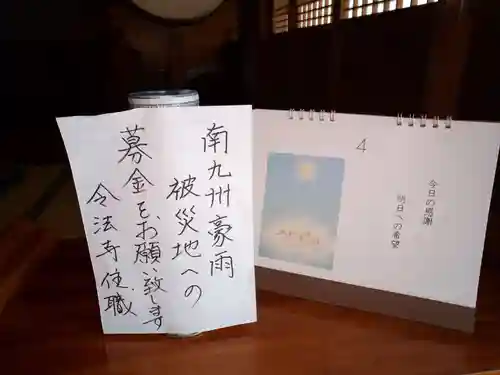 南九州豪雨
被災地への
募金をお願い致します
令法寺住職
4
今日の感謝
明日への希望